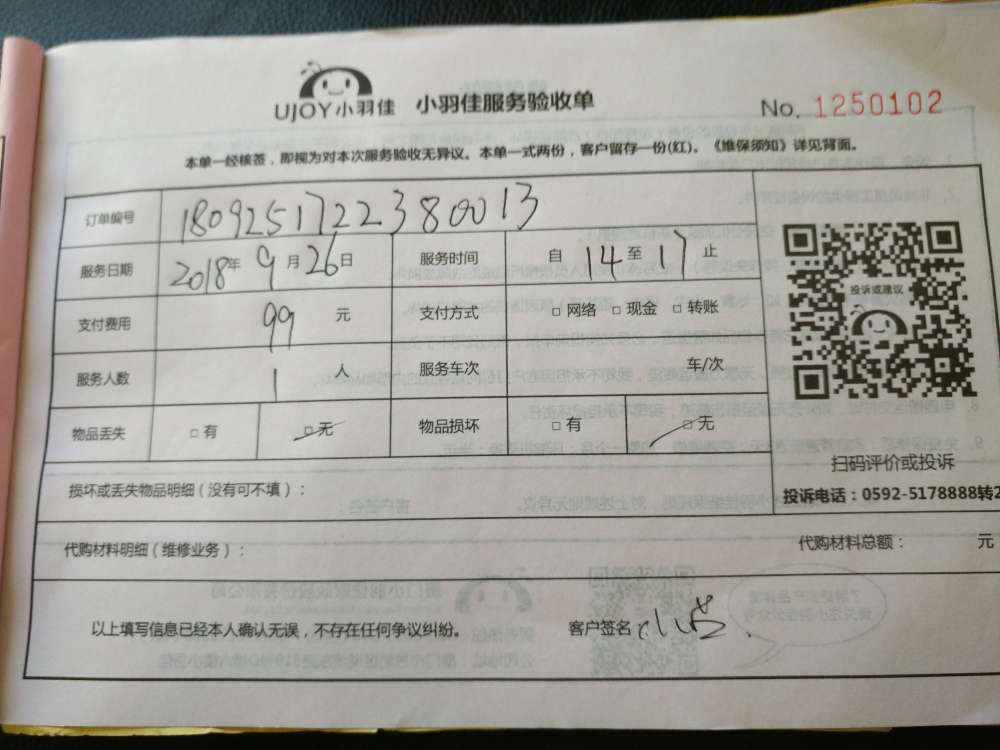 UJOY小羽佳 小羽佳服务验收单
No. 1250102
本单一经核签，即视为对本次服务验收无异议。本单一式两份，客户留存一份(红)。《维保须知》详见背面。
订单编号 1809251722380013
服务日期 2018年9月26日 服务时间 自14至17止
投诉或建议
支付费用 99元 支付方式 □网络 □现金 □转账
服务人数 1人 服务车次 车/次
物品丢失 □有 □无 物品损坏 □有 □无
扫码评价或投诉
损坏或丢失物品明细（没有可不填）：
投诉电话：0592-5178888转2
代购材料明细（维修业务）： 代购材料总额： 元
以上填写信息已经本人确认无误，不存在任何争议纠纷。 客户签名